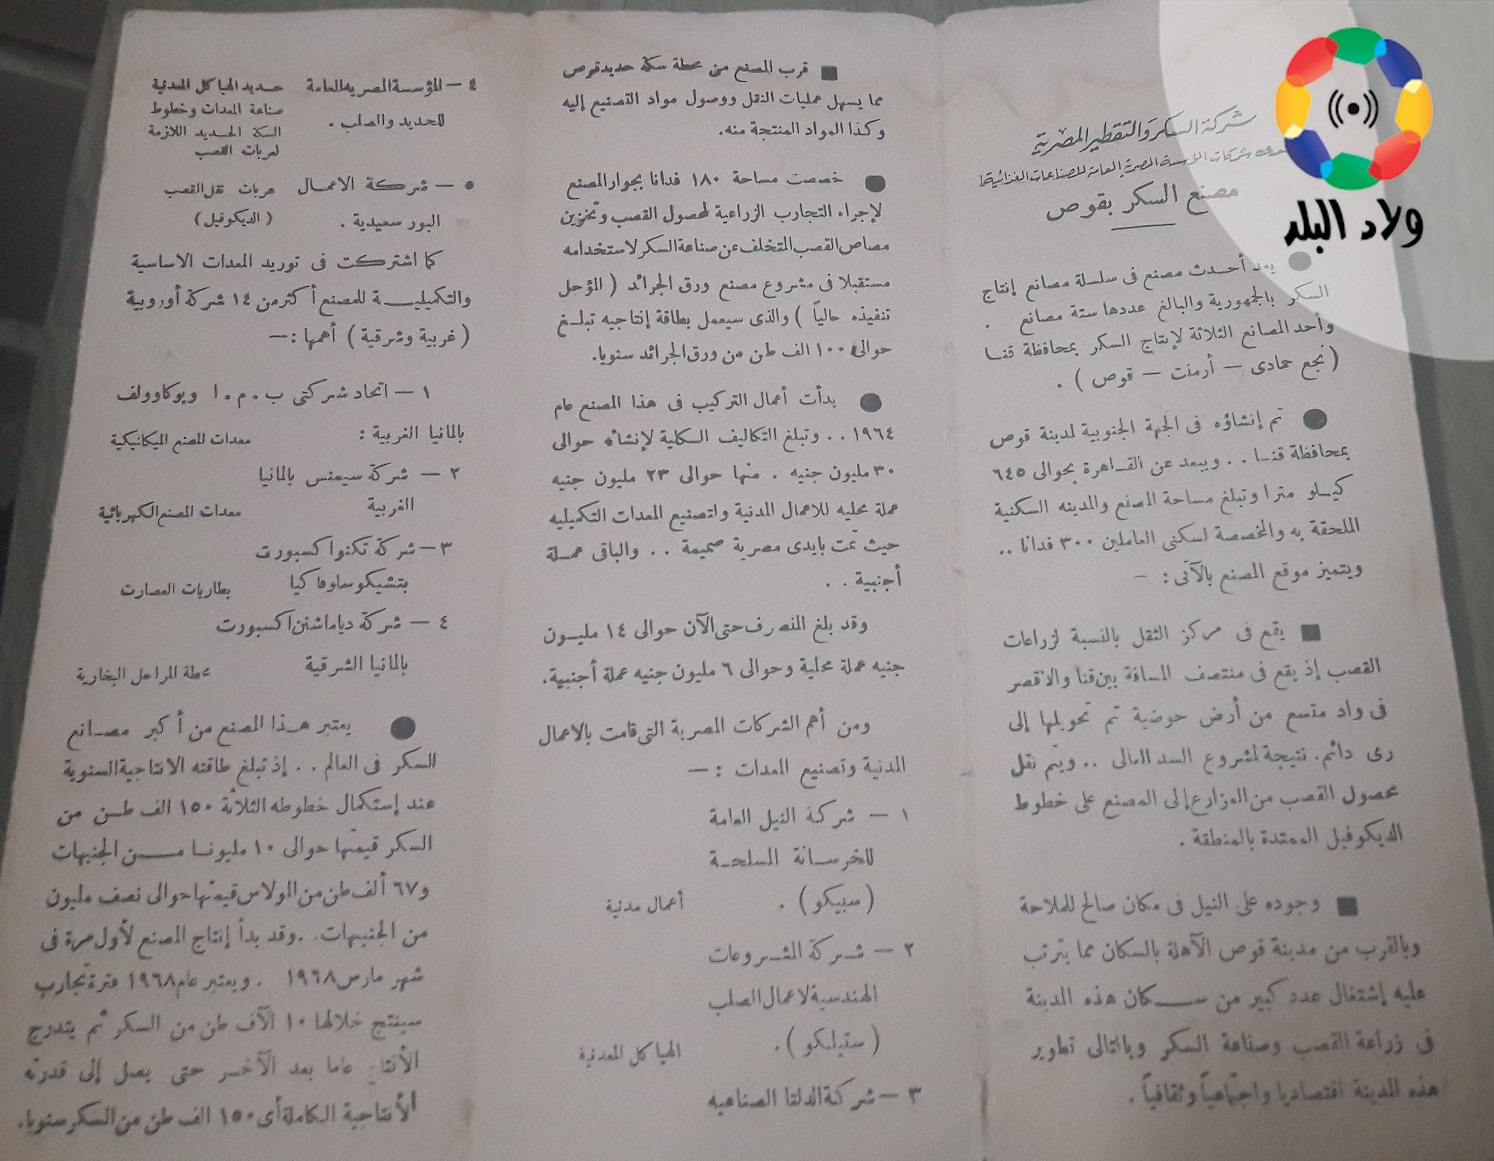 شركة السكر والتقطير المصرية
شركات المؤسسة المصرية العامة للصناعات الغذائية
مصنع السكر بقوص
يعد أحدث مصنع فى سلسلة مصانع إنتاج
السكر بالجمهورية والبالغ عددها ستة مصانع .
وأحد المصانع الثلاثة لإنتاج السكر بمحافظة قنا
( نجع حمادى – أرمنت – قوص ) .
تم إنشاؤه فى الجهة الجنوبية لمدينة قوص
بمحافظة قنا .. ويبعد عن القاهرة بحوالى ٦٤٥
كيلو مترا وتبلغ مساحة المصنع والمدينه السكنية
الملحقة به والمخصصة لسكنى العاملين ٣٠٠ فدانا ..
ويتميز موقع المصنع بالآتى : –
يقع فى مركز الثقل بالنسبة لزراعات
القصب إذ يقع فى منتصف المسافة بين قنا والاقصر
فى واد متسع من أرض حوضية تم تحويلها إلى
رى دائم. نتيجة لمشروع السد العالى .. ويتم نقل
محصول القصب من المزارع إلى المصنع على خطوط
الديكوفيل الممتدة بالمنطقة .
وجوده على النيل فى مكان صالح للملاحة
وبالقرب من مدينة قوص الآهلة بالسكان مما يترتب
عليه إشتغال عدد كبير من سكان هذه المدينة
فى زراعة القصب وصناعة السكر وبالتالى تطوير
هذه المدينة اقتصاديا واجتماعياً وثقافياً .
قرب المصنع من محطة سكة حديد قوص
مما يسهل عمليات النقل ووصول مواد التصنيع إليه
وكذا المواد المنتجة منه.
خصصت مساحة ١٨٠ فدانا بجوار المصنع
لإجراء التجارب الزراعية لمحصول القصب وتخزين
مصاص القصب المتخلف عن صناعة السكر لاستخدامه
مستقبلا فى مشروع مصنع ورق الجرائد ( المؤجل
تنفيذه حالياً ) والذى سيعمل بطاقة إنتاجيه تبلغ
حوالى ١٠٠ الف طن من ورق الجرائد سنويا.
بدأت أعمال التركيب فى هذا المصنع عام
١٩٦٤ .. وتبلغ التكاليف الكلية لإنشاء حوالى
٣٠ مليون جنيه . منها حوالى ٢٣ مليون جنيه
عملة محليه للاعمال المدنية واتصنيع المعدات التكميليه
حيث تمت بايدى مصرية صميمة .. والباقى عملة
أجنبية ..
وقد بلغ المنصرف حتى الآن حوالى ١٤ مليون
جنيه عملة محلية وحوالى ٦ مليون جنيه عملة أجنبية.
ومن أهم الشركات المصرية التى قامت بالاعمال
المدنية وتصنيع المعدات : –
١ – شركة النيل العامة
للخرسانة المسلحة
( سبيكو ) . أعمال مدنية
٢ – شركة المشروعات
الهندسية لاعمال الصلب
( ستيلكو ) . الهياكل المعدنية
٣ – شركة الدلتا الصناعيه
٤ – المؤسسة المصريه العامة حديد الهياكل المعدنية
للحديد والصلب . صناعة المعدات وخطوط
السكة الحديد اللازمة
لعربات القصب
٥ – شركة الاعمال عربات نقل القصب
البور سعيدية . ( الديكوفيل )
كما اشتركت فى توريد المعدات الاساسية
والتكميلية للمصنع أكثر من ١٤ شركة أوروبية
( غربية وشرقية ) أهمها :–
١ – اتحاد شركتى ب . م . ا وبوكاوولف
بالمانيا الغربية : معدات المصنع الميكانيكية
٢ – شركة سيمنس بالمانيا
الغربية معدات المصنع الكهربائية
٣ – شركة تكنوا كسبورت
بتشيكوسلوفاكيا بطاريات العصارت
٤ – شركة دياماشنن اكسبورت
بالمانيا الشرقية محطة المراجل البخارية
يعتبر هذا المصنع من أكبر مصانع
السكر فى العالم .. إذ تبلغ طاقته الانتاجية السنوية
عند إستكمال خطوطه الثلاثة ١٥٠ الف طن من
السكر قيمتها حوالى ١٠ مليونا من الجنيهات
و ٦٧ ألف طن من المولاس قيمتها حوالى نصف مليون
من الجنيهات. . وقد بدأ إنتاج المصنع لأول مرة فى
شهر مارس ١٩٦٨ . ويعتبر عام ١٩٦٨ فترة تجارب
سينتج خلالها ١٠ آلاف طن من السكر ثم يتدرج
الأنتاج عاما بعد الآخر حتى يصل إلى قدرته
الأنتاجية الكاملة أى ١٥٠ الف طن من السكر سنويا.
ولاد البلد